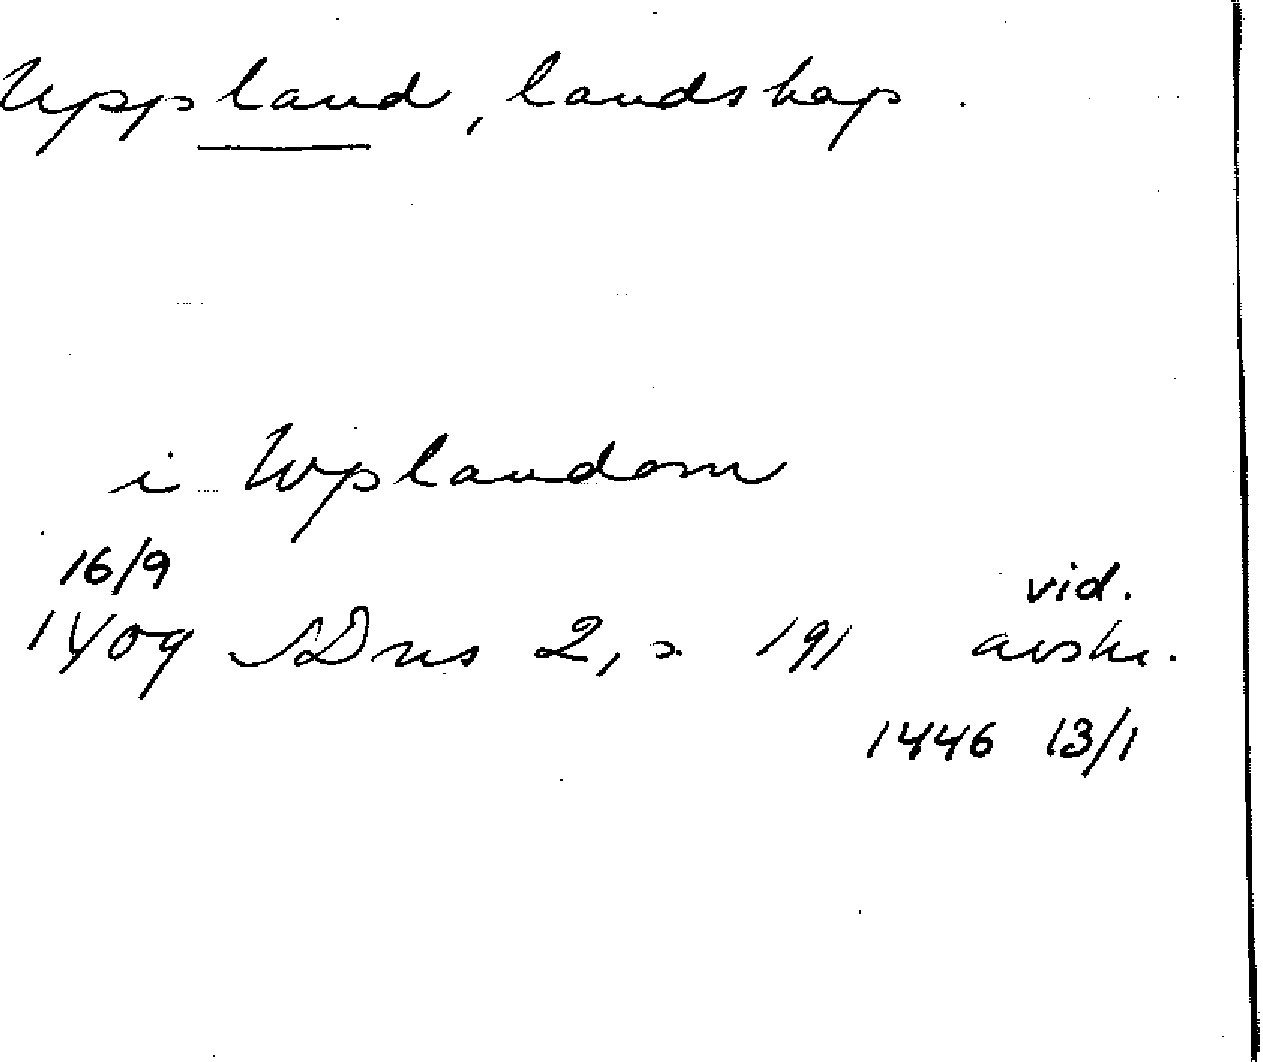 Uppland, landskap.
i Wplandom
16/9
1409 SDns 2, s. 191 vid. avskr.
1446 13/1